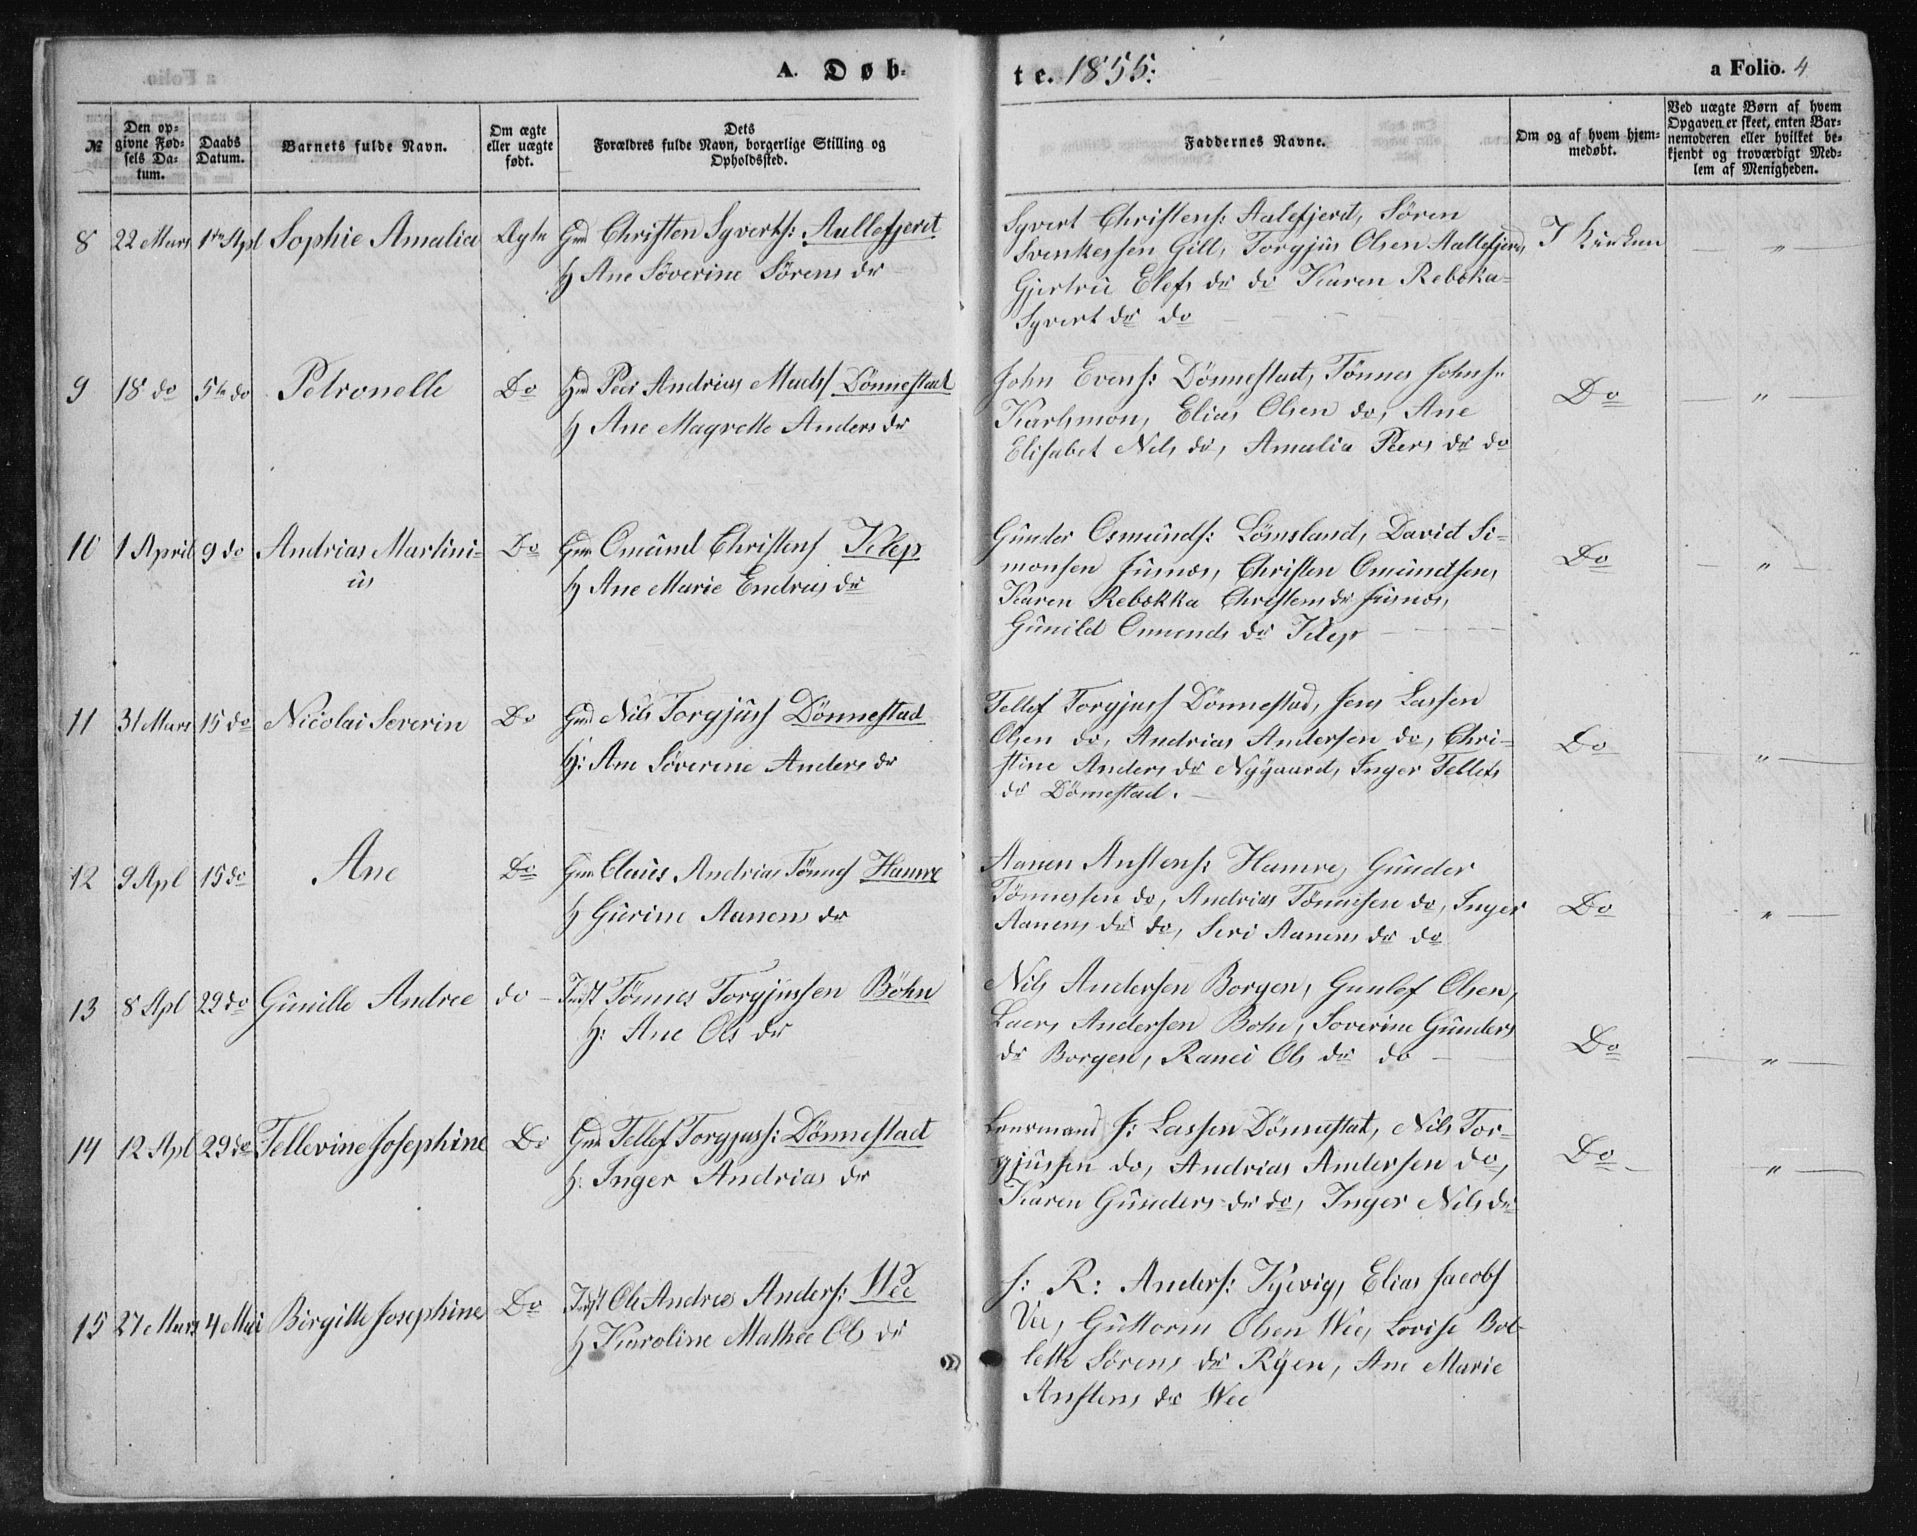 A. Døb-
te. 1855:
a Folio. 4
№
Den op-
givne Fød-
sels Da-
tum.
Daabs
Datum.
Barnets fulde Navn.
Om ægte
eller uægte
født.
Dets
Forældres fulde Navn, borgerlige Stilling og
Opholdssted.
Faddernes Navne.
Om og af hvem hjem-
medøbt.
Ved uægte Børn af hvem
Opgaven er skeet, enten Bar-
nemoderen eller hvilket be-
kjendt og troværdigt Med-
lem af Menigheden.
8 22 Mars 1ste Apl Sophie Amalia Ægte Gm Christen Syverts: Aallefjeret
H Ane Söverine Sörens dr
Syvert Christens: Aalefjerd, Sören
Svenkessen Gill, Torgjus Olsen Aallefjere,
Gjertrü Elefs dr do Karen Rebekka
Syvert dr do
I Kirken
9 18 do 5te do Petronelle Do Gm Peer Andrias Mads/ Dönnestad
H Ane Magrette Anders dr
John Evens: Dönnestad, Tönnes Johns:
Karlsmon, Elias Olsen do, Ane
Elisabet Nils dr, Amalia Peers dr do
Do
10 1 April 9 do Andrias Martini-
us
Do Gm Omund Christens/ Klep
H Ane Marie Endrias dr
Gunder Osmunds: Lömsland, David Si-
monsen Fusnæs, Christen Omundsen,
Karen Rebekka Christens dr Fusnæs,
Gunild Omunds dr Klep
Do
11 31 Mars 15 do Nicolai Severin Do Gm Nils Torgjus/ Dönnestad
H: Ane Söverine Anders dr
Tellef Torgjus/ Dönnestad, Jens Lassen
Olsen do, Andrias Andersen do, Chri-
stine Anders dr Nygaard, Inger Tellefs
dr Dönnestad.
Do
12 9 Apl 15 do Ane Do Gm Claus Andrias Tönnes/ Hamre
H Gurine Aanens dr
Aanen Anstens: Hamre, Gunder
Tönnessen do, Andrias Tönnesen do, Inger
Aanens dr do, Seri Aanens dr do
Do
13 8 Apl 29 do Gunille Andree do Inst Tönnes Torgjussen Böhn
H: Ane Ols dr
Nils Andersen Borgen, Gunlef Olsen,
Laers Andersen Bohn, Soverine Gunders
dr Borgen, Ranei Ols dr do
Do
14 12 Apl 29 do Tellevine Josephine Do Gm Tellef Torgjuss: Dönnestad
H: Inger Andrias dr
Lensmand J: Lassen Dönnestad, Nils Tor-
gjussen do, Andrias Andersen do,
Karen Gunders dr do, Inger Nils dr
Do
15 27 Mars 4 Mai Birgitte Josephine Do Inst Ole Andreas Anders: Wee
H Karoline Mathee Ols dr
J: R: Anders: Tjevig, Elias Jacobs/
Vee, Guttorm Olsen Wee, Lovise Bol-
lette Sörens dr Ryen, Ane Marie
Anstens dr Wee